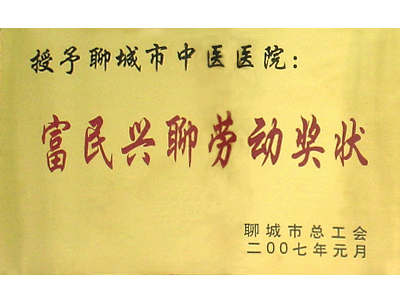 授予聊城市中医医院：
富民兴聊劳动奖状
聊城市总工会
二〇〇七年元月